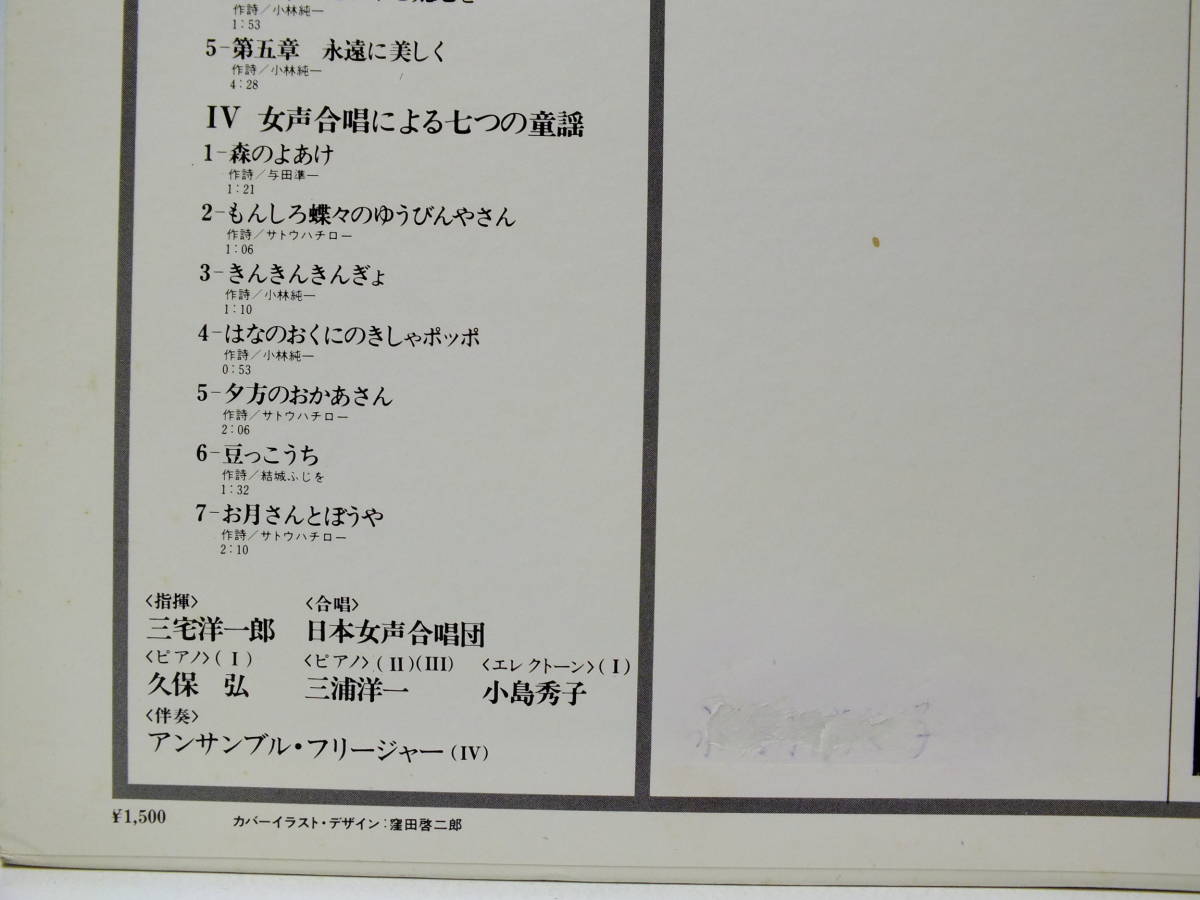 作詩/小林純一
1:53
5-第五章　永遠に美しく
作詩/小林純一
4:28
IV 女声合唱による七つの童謡
1-森のよあけ
作詩/与田準一
1:21
2-もんしろ蝶々のゆうびんやさん
作詩/サトウハチロー
1:06
3-きんきんきんぎょ
作詩/小林純一
1:10
4-はなのおくにのきしゃポッポ
作詩/小林純一
0:53
5-夕方のおかあさん
作詩/サトウハチロー
2:06
6-豆っこうち
作詩/結城ふじを
1:32
7-お月さんとぼうや
作詩/サトウハチロー
2:10
〈指揮〉 〈合唱〉
三宅洋一郎 日本女声合唱団
〈ピアノ〉(I) 〈ピアノ〉(II)(III) 〈エレクトーン〉(I)
久保　弘 三浦洋一 小島秀子
〈伴奏〉
アンサンブル・フリージャー(IV)
¥1,500 カバーイラスト・デザイン:窪田啓二郎